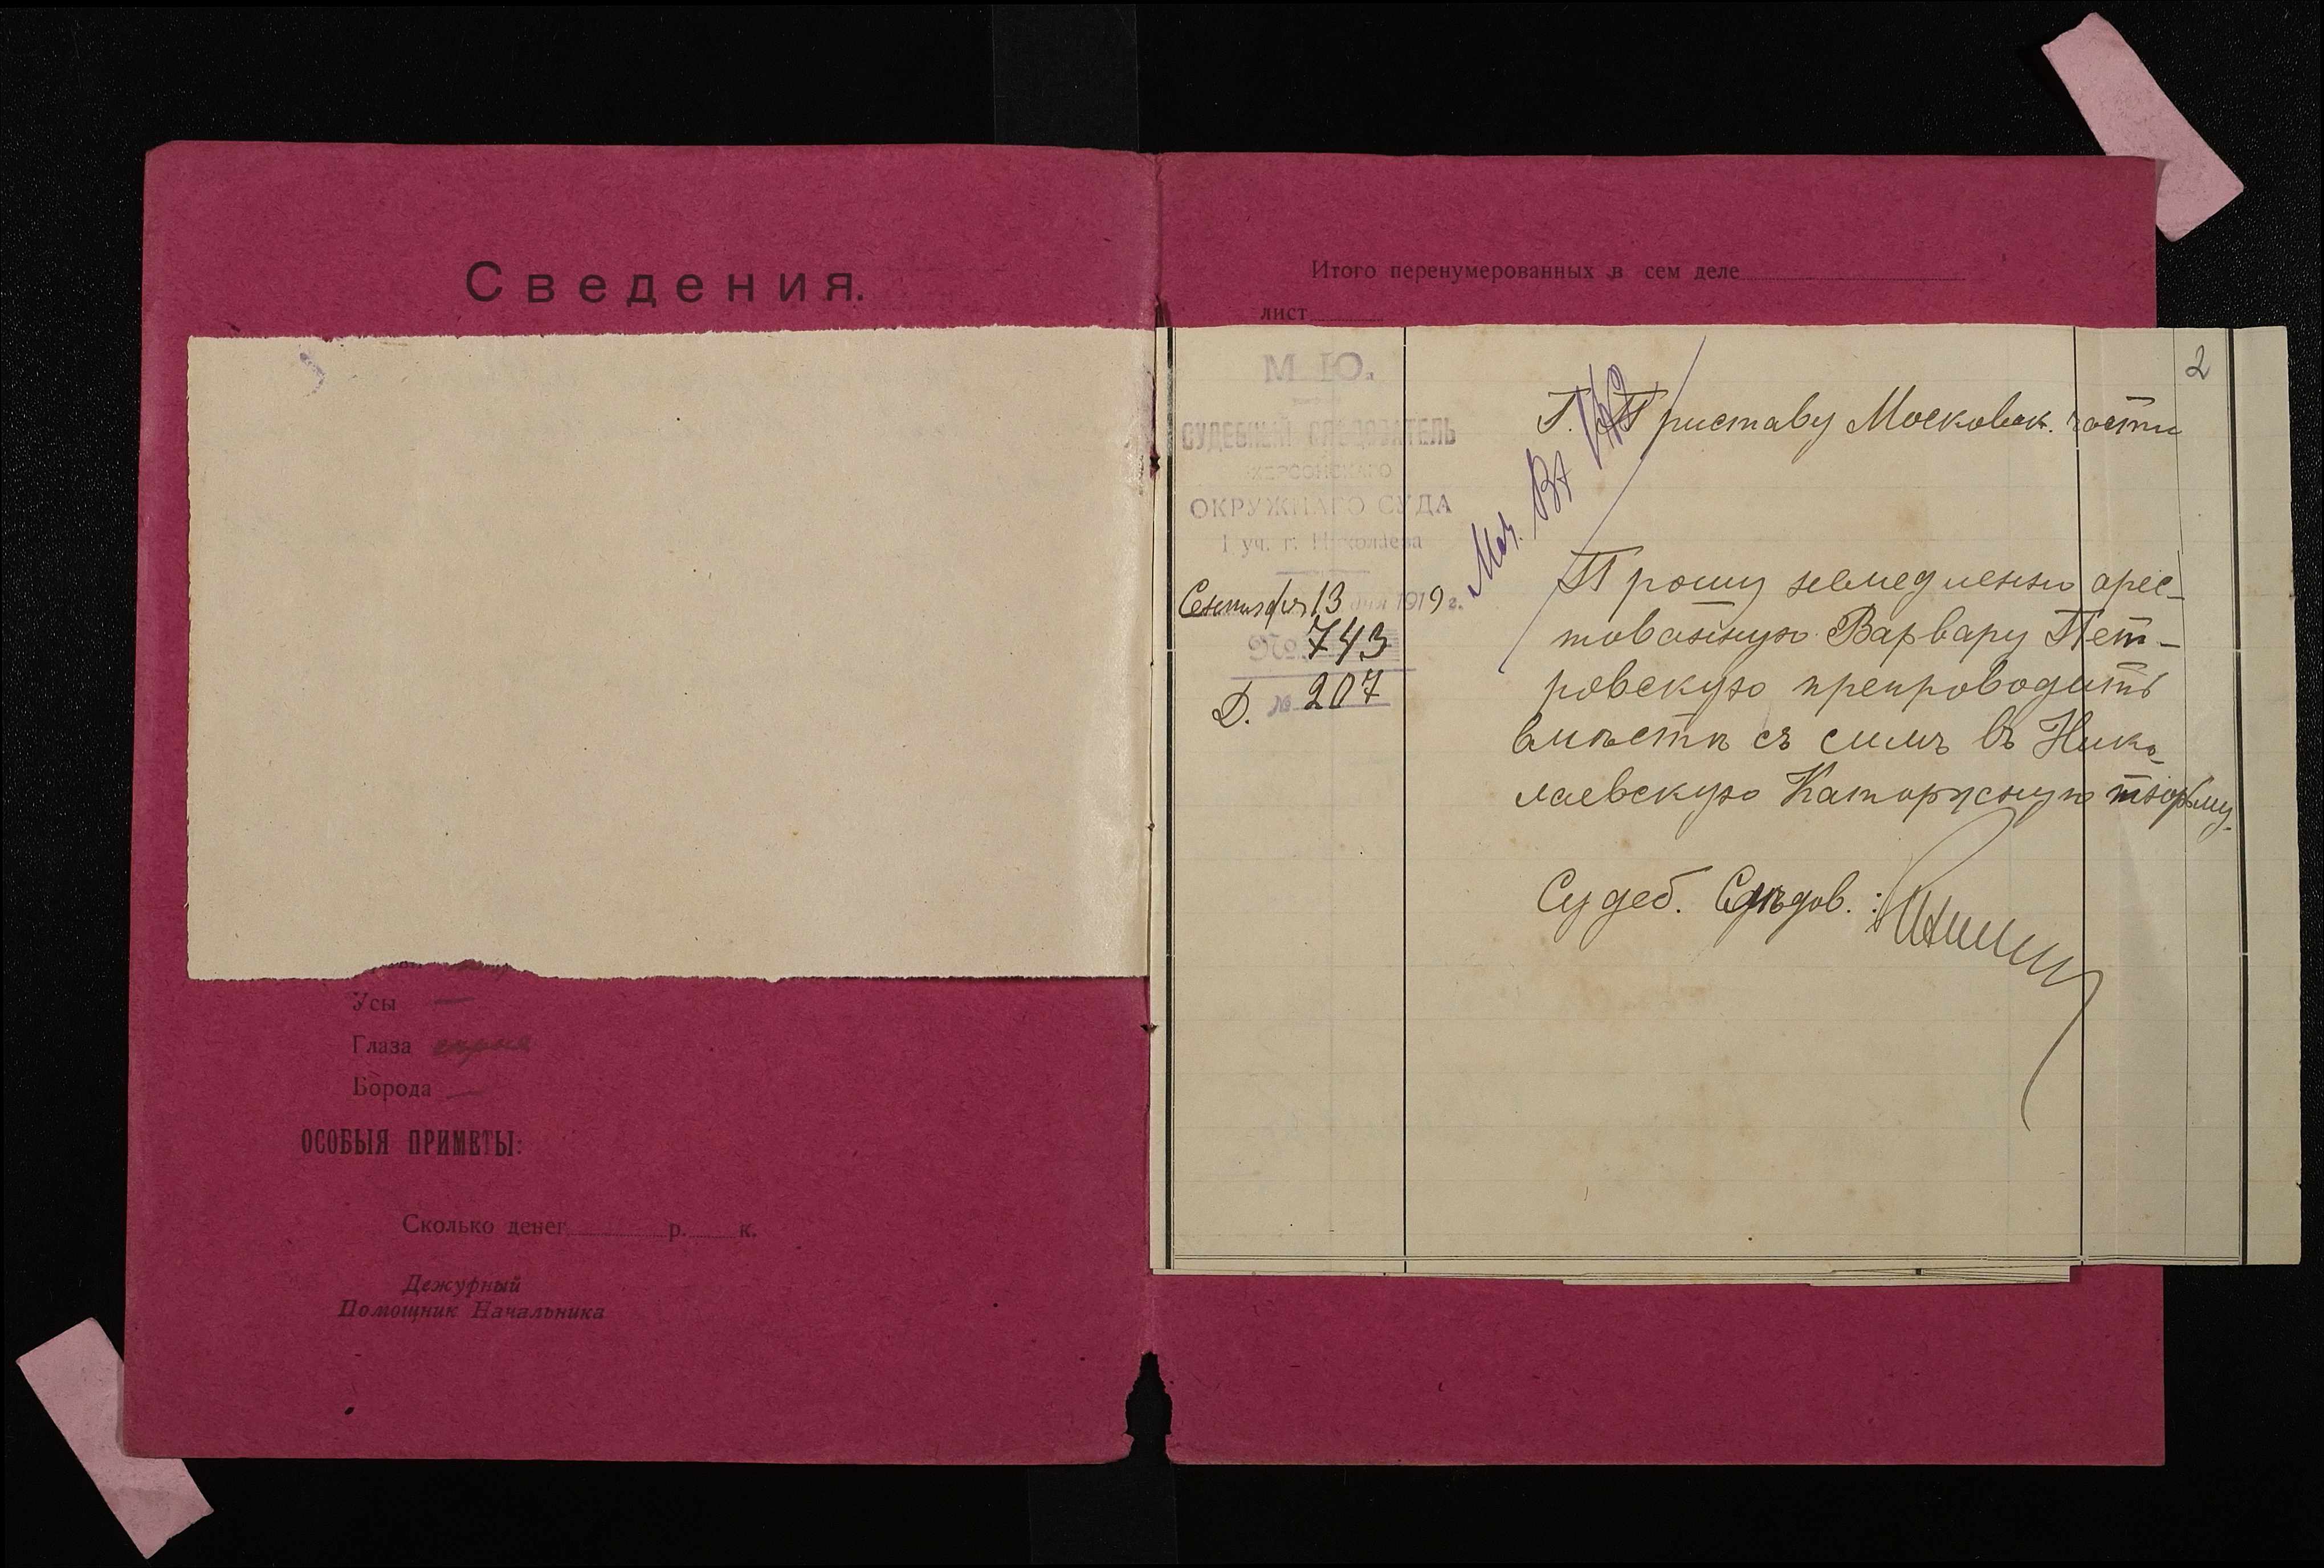 Сведения.
Усы —
Глаза серые
Борода —
ОСОБЫЯ ПРИМЕТЫ:
Сколько денег р. к.
Дежурный
Помощник Начальника
Итого перенумерованных в сем деле
лист
2
М. Ю.
СУДЕБНЫЙ СЛЕДОВАТЕЛЬ
ХЕРСОНСКАГО
ОКРУЖНАГО СУДА
1 уч. г. Николаева
Сентября 13 дня 1919 г.
№ 743
Д. № 207
Г. Приставу Московск. части
Прошу немедленно арес-
тованную Варвару Пет-
ровскую препроводить
вмѣстѣ съ симъ въ Нико-
лаевскую Каторжную тюрьму.
Судеб. Слѣдов.: